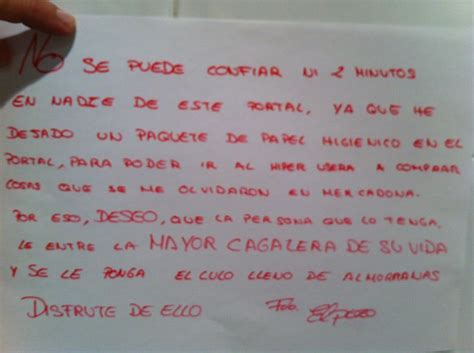 NO SE PUEDE CONFIAR NI 2 MINUTOS
EN NADIE DE ESTE PORTAL, YA QUE HE
DESADO UN PAQUETE DE PAPEL HIGIENICO EN EL
PORTAL, PARA PODER IR AL HIPER USERA A COMPRAR
COSAS QUE SE ME OLVIDARON EN MERCADONA.
POR ESO, DESEO, QUE LA PERSONA QUE LO TENGA,
LE ENTRE LA MAYOR CAGALERA DE SU VIDA
Y SE LE PONGA EL CULO LLENO DE ALMORRANAS
DISFRUTE DE ELLO Fdo.